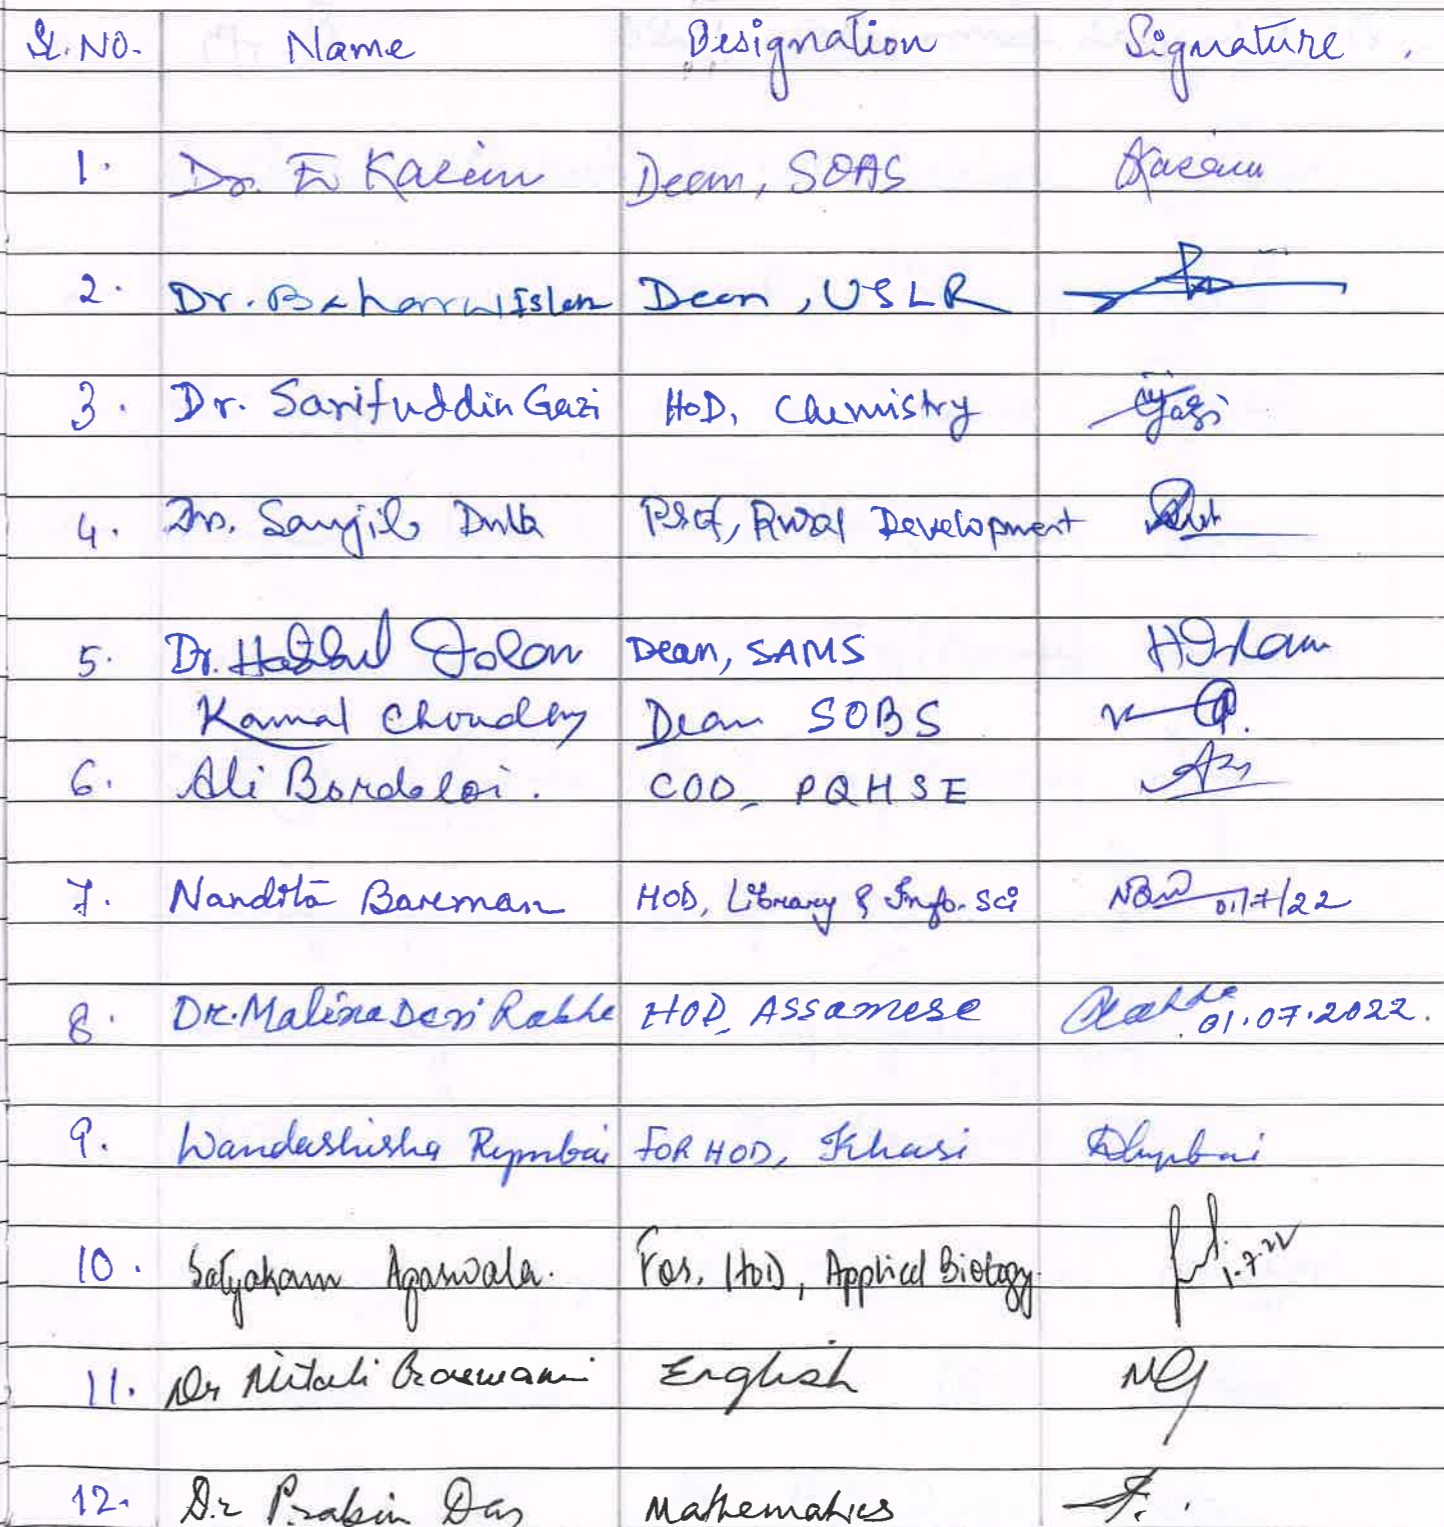 Sl. No. Name Designation Signature
1. Dr. E Kasim Dean, SOAS Kasim
2. Dr. Islam Dean, USLR
3. Dr. Sarifuddin Gazi HoD, Chemistry Gazi
4. Dr. Sanjib Dutta Prof, Rural Development
5. Dr. Habibul Islam Dean, SAMS HIslam
Kamal Choudhury Dean SOBS
6. Ali Bordoloi. COD, PQHSE
7. Nandita Barman HOD, Library & Info. Sci 01/7/22
8. Dr. Malina Devi Rabha HOD, Assamese Rabha 01.07.2022.
9. Wandashisha Rymbai FOR HOD, Khasi Rymbai
10. Satyakam Agarwala. For, HoD, Applied Biology. 1.7.22
11. Dr Mitali Goswami English MG
12. Dr Prabin Das Mathematics